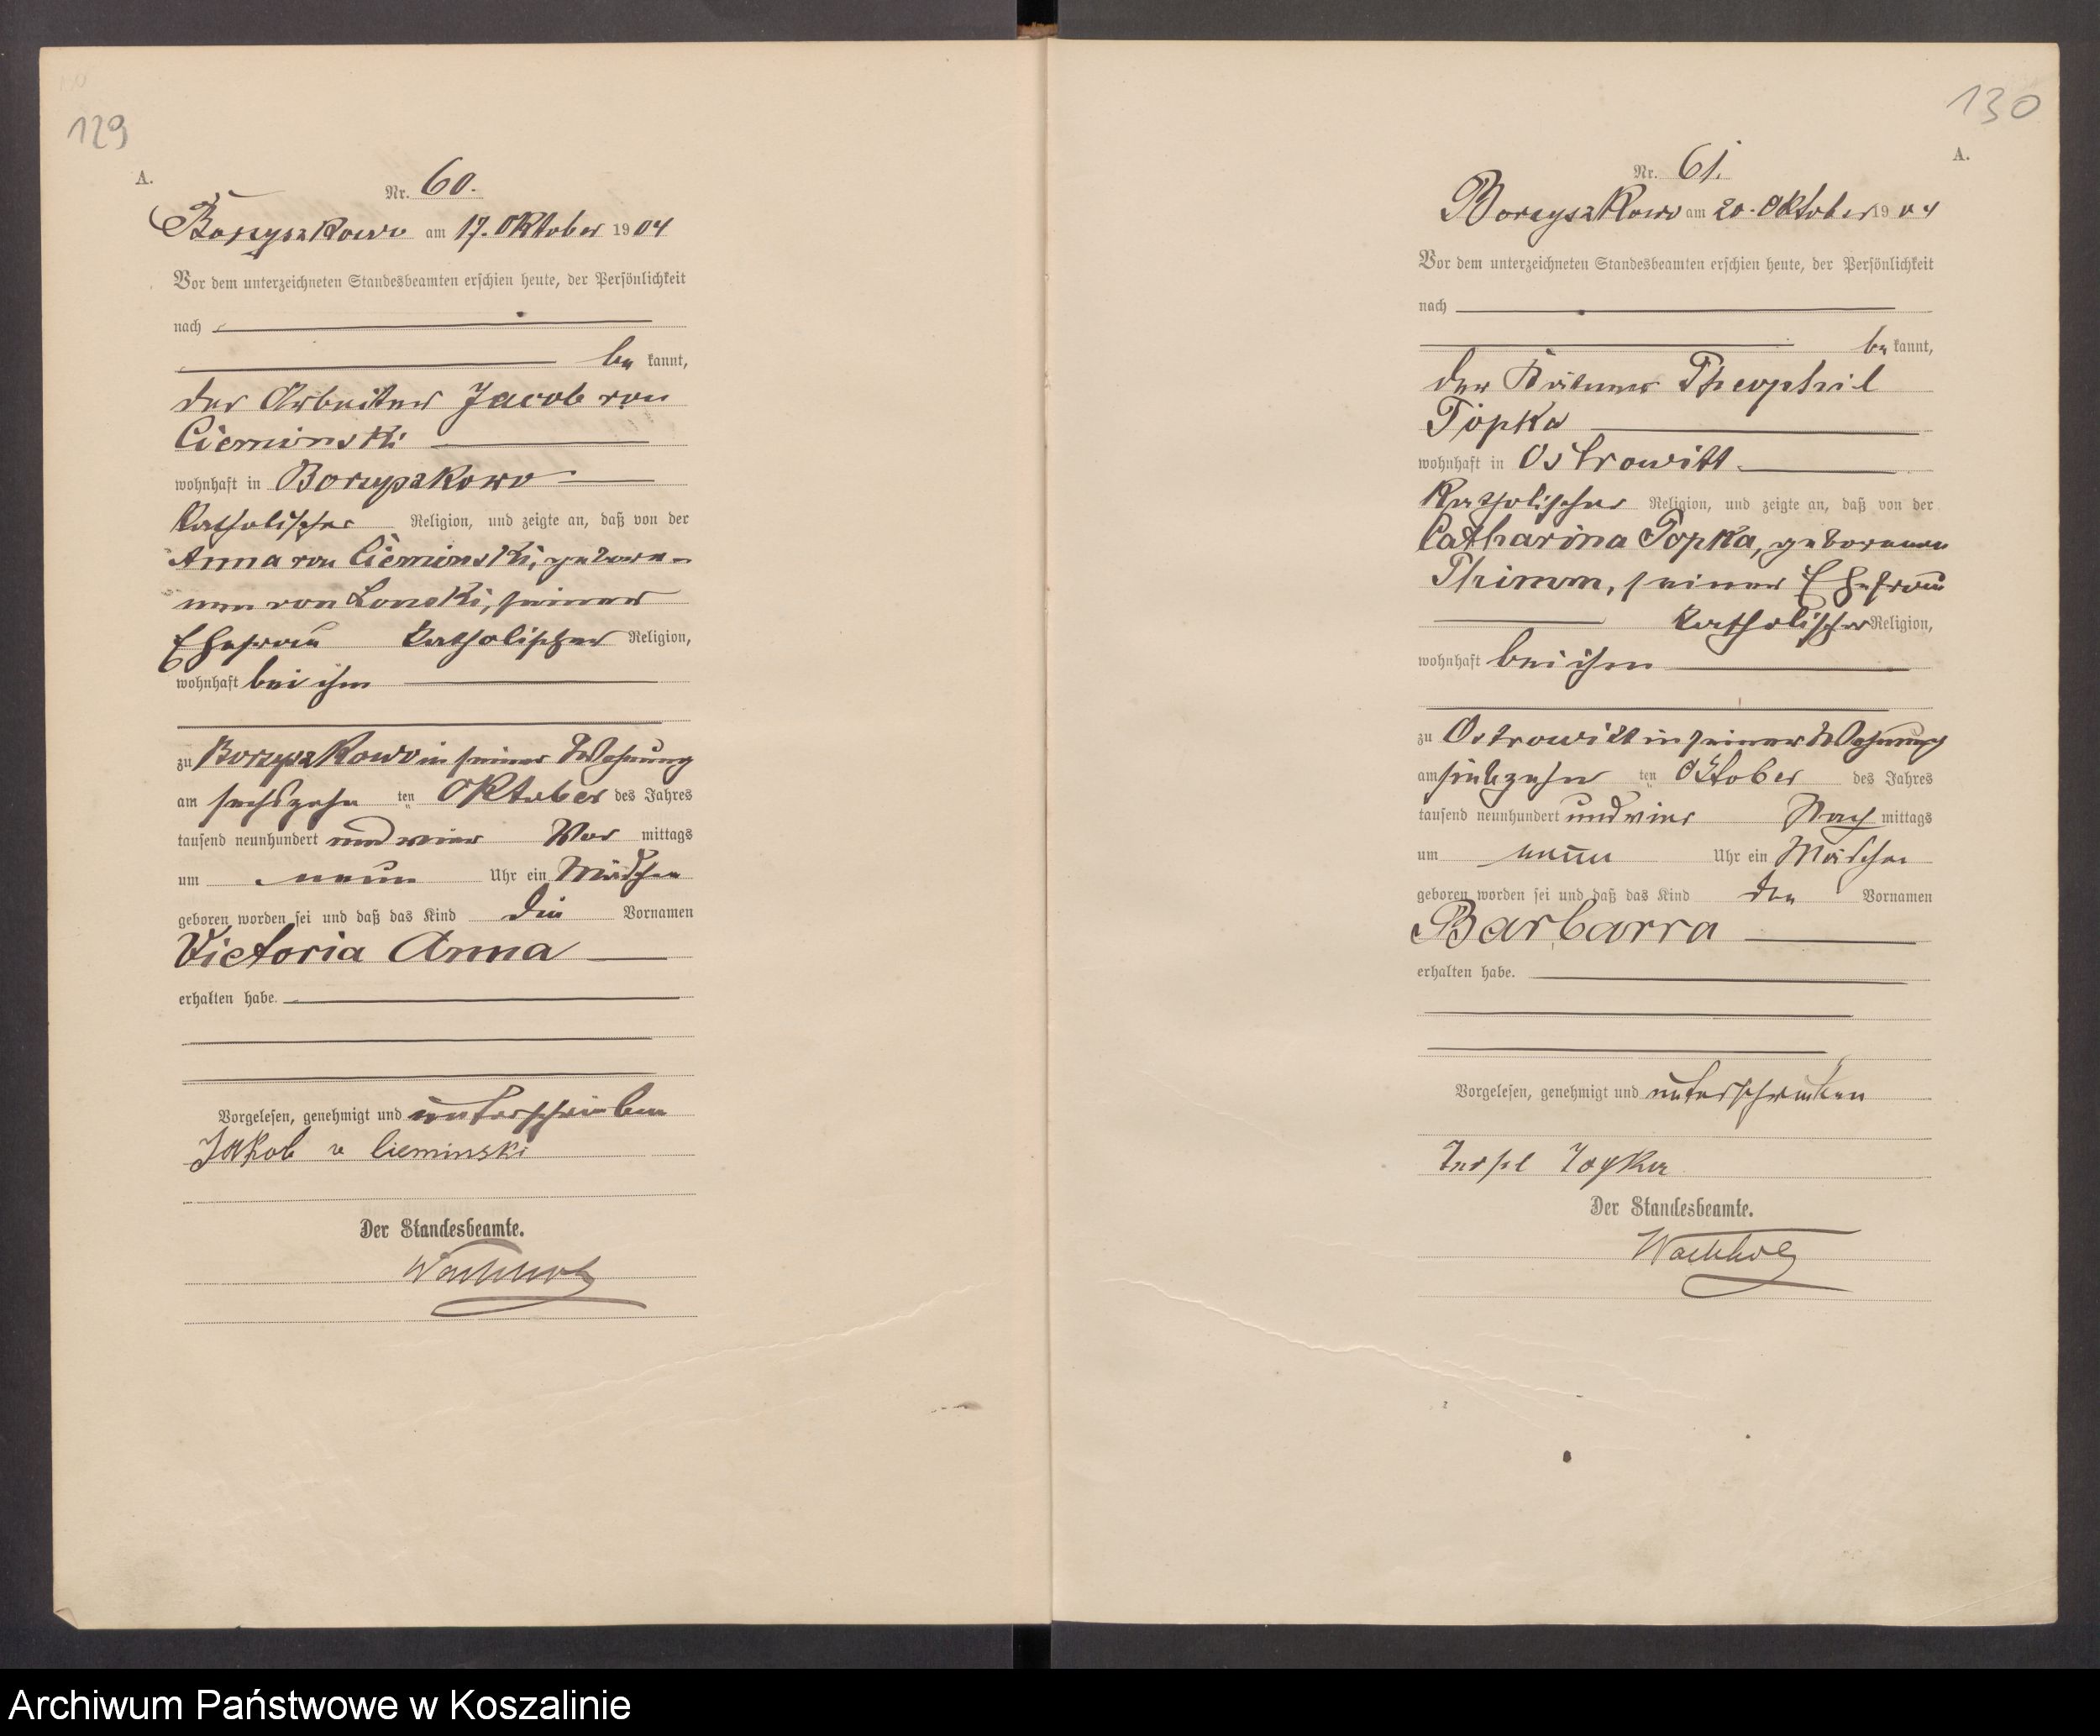 129
A.
Nr. 60.
Borzyszkowo am 17. Oktober 1904
Vor dem unterzeichneten Standesbeamten erschien heute, der Persönlichkeit
nach
be kannt,
der Arbeiter Jacob von
Cieminski
wohnhaft in Borzyszkowo
katholischer Religion, und zeigte an, daß von der
Anna von Cieminski, gebore-
nen von Lonski, seiner
Ehefrau katholischer Religion,
wohnhaft bei ihm
zu Borzyszkowo in seiner Wohnung
am sechszehn ten Oktober des Jahres
tausend neunhundert und vier Vor mittags
um neun Uhr ein Mädchen
geboren worden sei und daß das Kind die Vornamen
Victoria Anna
erhalten habe.
Vorgelesen, genehmigt und unterschrieben
Jakob v Cieminski
Der Standesbeamte.
Wachholz
130
A.
Nr. 61.
Borzyszkowo am 20. Oktober 1904
Vor dem unterzeichneten Standesbeamten erschien heute, der Persönlichkeit
nach
be kannt,
der Kätner Theophil
Topka
wohnhaft in Ostrowitt
katholischer Religion, und zeigte an, daß von der
Catharina Topka, geborenen
Thimm, seiner Ehefrau
katholischer Religion,
wohnhaft bei ihm
zu Ostrowitt in seiner Wohnung
am siebzehn ten Oktober des Jahres
tausend neunhundert und vier Nach mittags
um neun Uhr ein Mädchen
geboren worden sei und daß das Kind den Vornamen
Barbarra
erhalten habe.
Vorgelesen, genehmigt und unterschrieben
Der Standesbeamte.
Wachholz
Archiwum Państwowe w Koszalinie